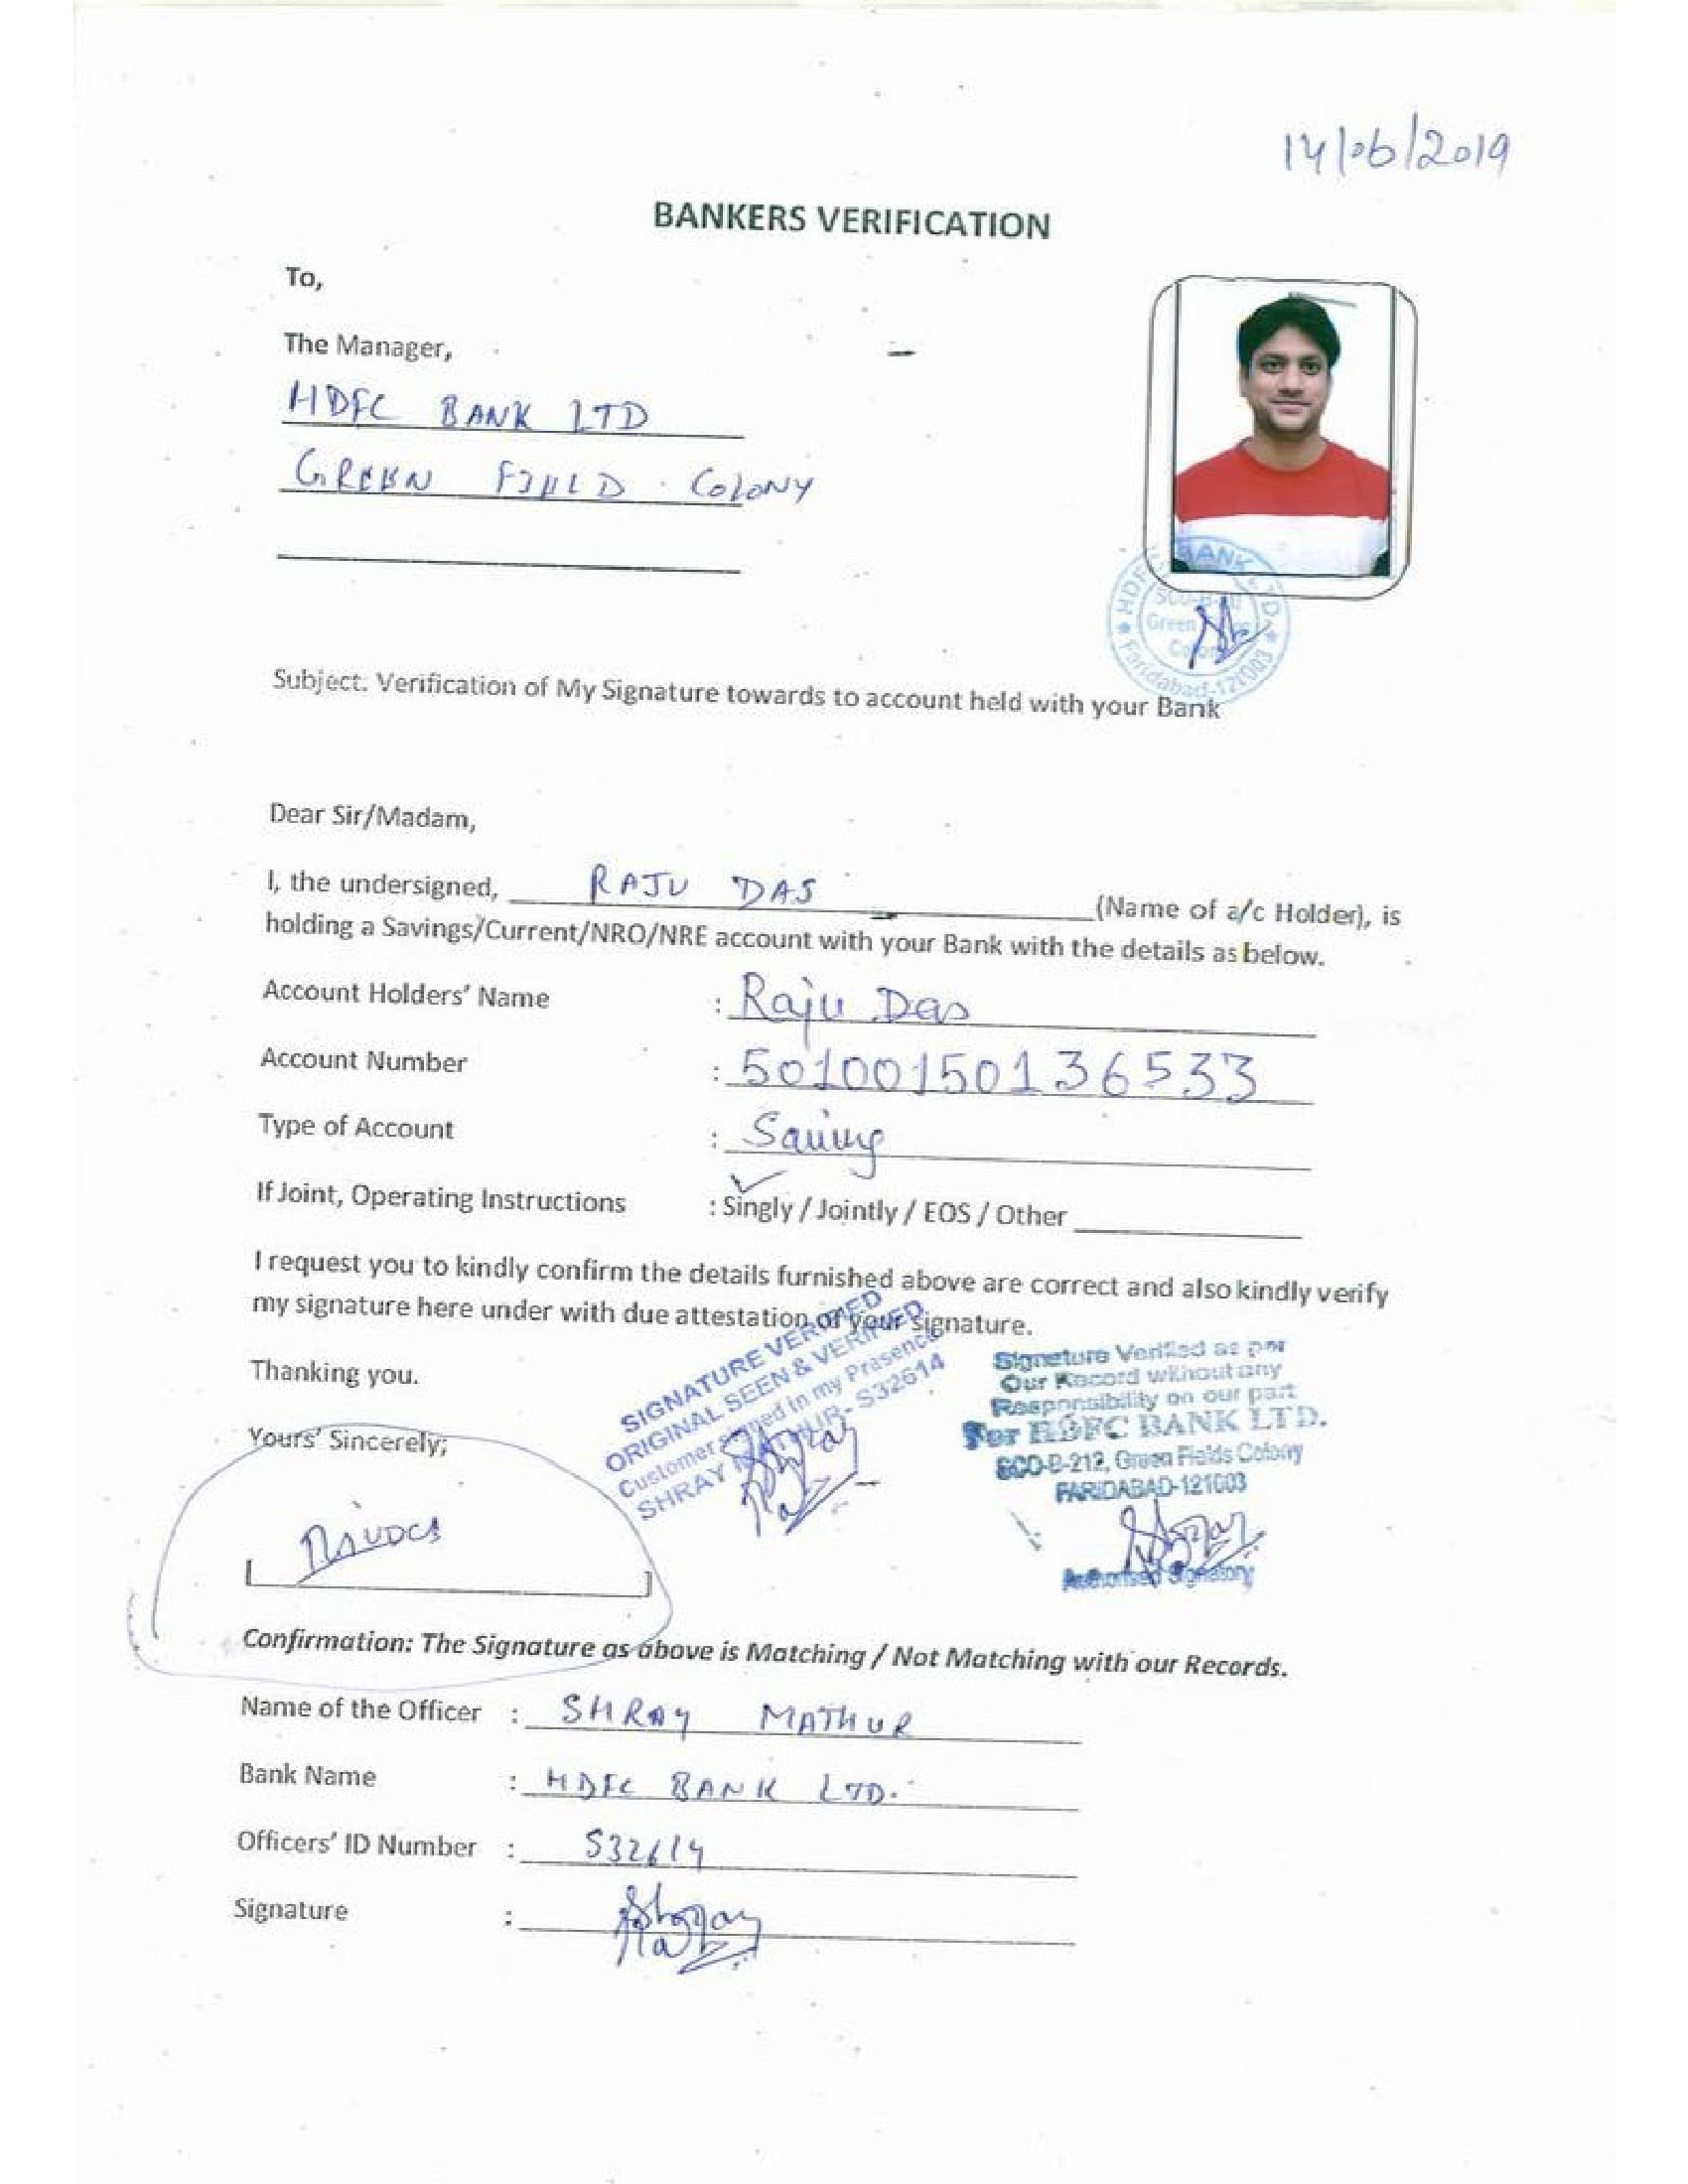 14/06/2019
BANKERS VERIFICATION
To,
The Manager,
HDFC BANK LTD
GREEN FIELD COLONY
HDFC BANK LTD.
SCO-B-212
Green Fields
Colony
Faridabad-121003
Subject: Verification of My Signature towards to account held with your Bank
Dear Sir/Madam,
I, the undersigned, RAJU DAS (Name of a/c Holder), is
holding a Savings/Current/NRO/NRE account with your Bank with the details as below.
Account Holders' Name : Raju Das
Account Number : 50100150136533
Type of Account : Saving
If Joint, Operating Instructions : Singly / Jointly / EOS / Other
I request you to kindly confirm the details furnished above are correct and also kindly verify
my signature here under with due attestation of your signature.
Thanking you.
SIGNATURE VERIFIED
ORIGINAL SEEN & VERIFIED
Customer signed in my Prasence
SHRAY MATHUR- S32614
Signature Verified as per
Our Record without any
Responsibility on our part
For HDFC BANK LTD.
SCO-B-212, Green Fields Colony
FARIDABAD-121003
Authorised Signatory
Yours' Sincerely;
Confirmation: The Signature as above is Matching / Not Matching with our Records.
Name of the Officer : SHRAY MATHUR
Bank Name : HDFC BANK LTD.
Officers' ID Number : S32614
Signature :